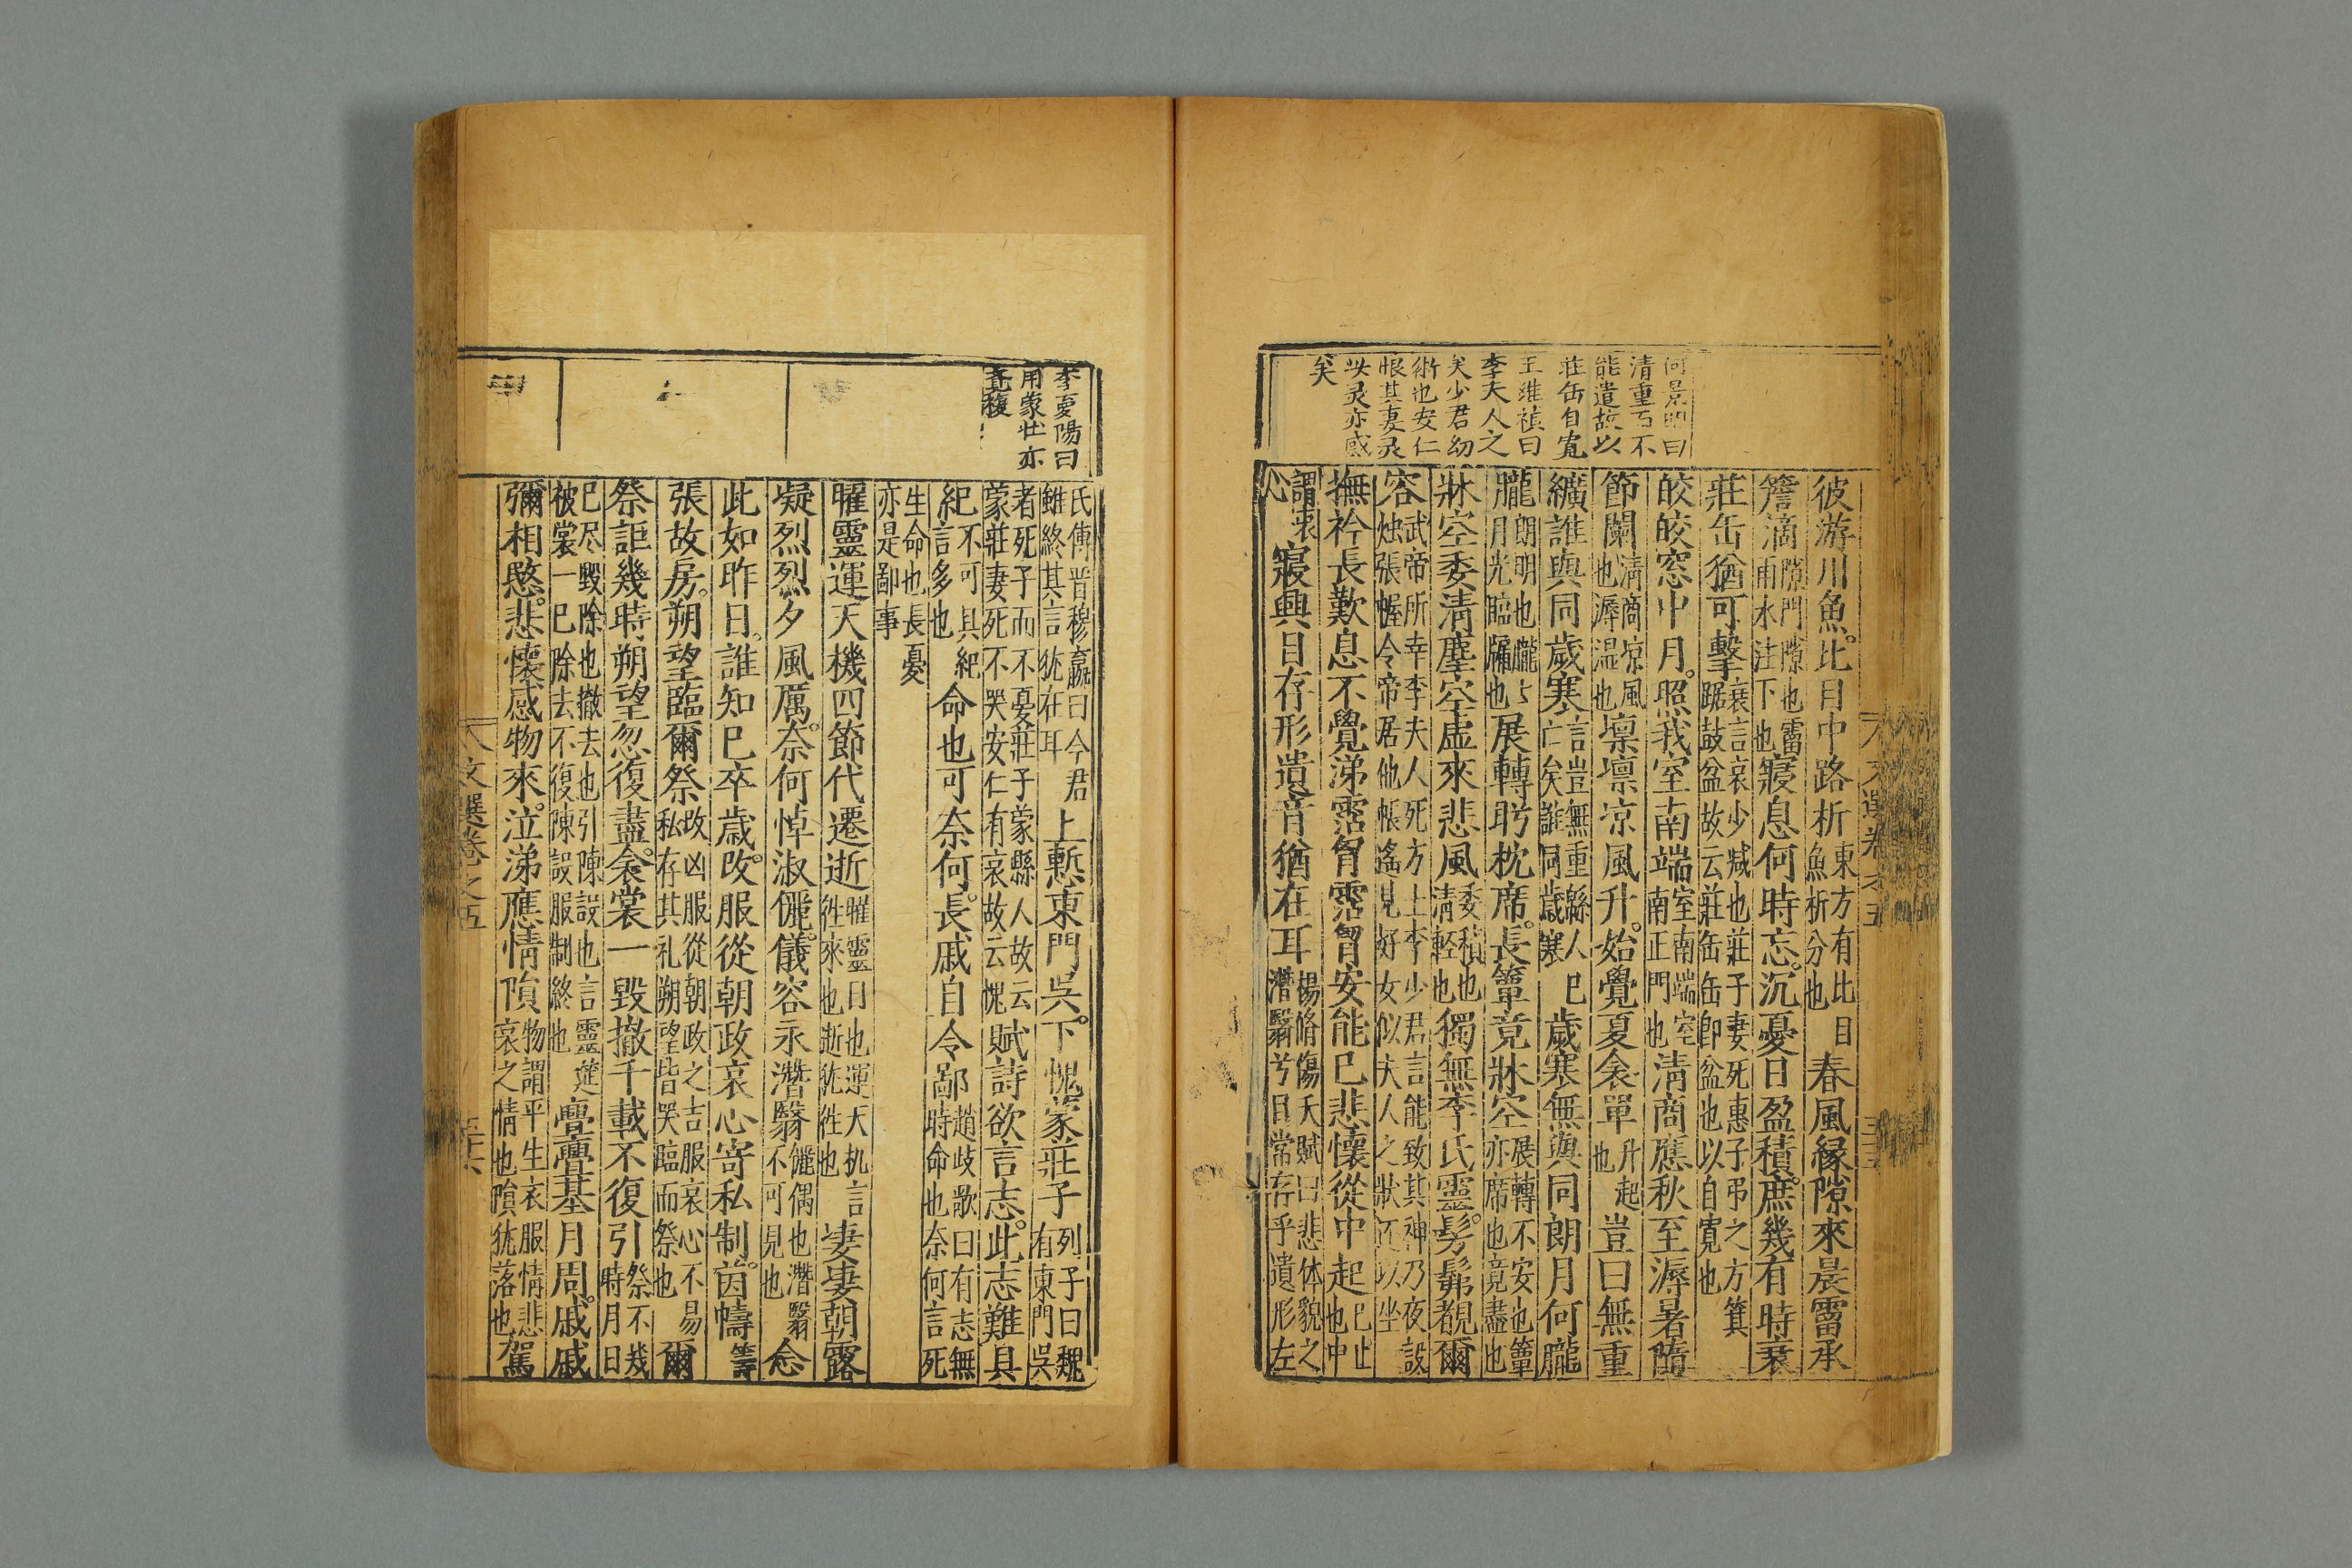 何景明曰
清重而不
能遣故以
莊缶自寬
王維楨曰
李夫人之
矣少君幼
術也安仁
恨其妻灵
災灵亦惑
矣
彼游川魚比目中路析東方有比目魚析分也春風緣隙來晨霤承
簷滴隙門隙也霤雨水注下也寢息何時忘沉憂日盈積庶幾有時衰
莊缶猶可擊衰言哀少减也莊子妻死惠子弔之方箕踞鼓盆故云莊缶缶即盆也以自寬也
皎皎窓中月照我室南端室南端室南正門也清商應秋至溽暑隨
節闌清商凉風也溽温也凛凛凉風升始覺夏衾單升起也豈曰無重
纊誰與同歲寒言豈無重緜人已亡矣誰同歲寒歲寒無與同朗月何朧
朧朗明也朧〻月光臨牖也展轉眄枕席長簟竟牀空展轉不安也簟亦席也竟盡也
牀空委清塵空虛來悲風委積也清輕也獨無李氏靈髣髴覩爾
容武帝所幸李夫人死方士李少君言能致其神乃夜設烛張幄令帝居他帳遙見好女似夫人之狀不以坐
撫衿長歎息不覺涕霑胷霑胷安能已悲懷從中起已止也中
謂衷心寢興目存形遺音猶在耳楊脩傷夭賦曰悲体貌之潛翳兮目常存乎遺形左
文選卷之五
李夏陽曰
用蒙壯亦
竟複
氏傳晋穆嬴曰今君雖終其言犹在耳上慙東門吳下愧蒙莊子列子曰魏有東門吳
者死子而不憂莊子蒙縣人故云蒙莊妻死不哭安仁有哀故云愧賦詩欲言志此志難具
紀不可具紀言多也命也可奈何長戚自令鄙趙歧歌曰有志無時命也奈何言死
生命也長憂亦是鄙事
曜靈運天機四節代遷逝曜靈日也運天机言徃來也逝犹徃也悽悽朝露
凝烈烈夕風厲奈何悼淑儷儀容永潛翳儷偶也潛翳不可見也念
此如昨日誰知已卒歲改服從朝政哀心寄私制茵幬
張故房朔望臨爾祭改凶服從朝政之吉服哀心不易私存其礼朔望皆哭臨而祭也爾
祭詎幾時朔望忽復盡衾裳一毀撤千載不復引祭不幾時月日
已尽毀除也撤去也引陳設也言靈筵被裳一已除去不復陳設服制終也亹亹朞月周戚戚
彌相愍悲懷感物來泣涕應情隕物謂平生衣服情悲哀之情也隕犹落也駕
文選卷之五